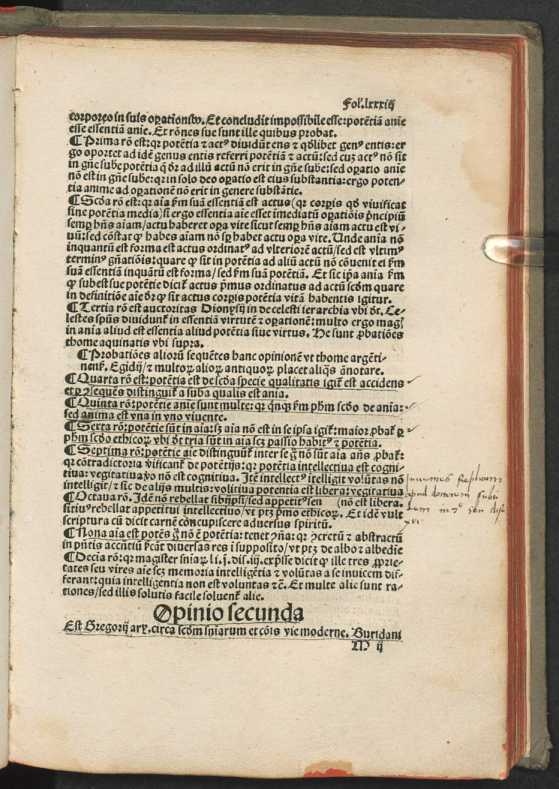 Fol. lxxiij
corporeo in suis oꝑationibꝰ. Et concludit impossibile esse: potẽtiã anie
esse essentiã anie. Et rõnes sue sunt ille quibus probat.
¶ Prima rõ est: qꝛ potẽtia ⁊ actꝰ diuidũt ens ⁊ qõlibet genꝰ entis: er
go oportet ad idẽ genus entis referri potẽtiã ⁊ actũ: sed cuiꝰ actꝰ nõ sit
in gñe sube potẽtia q̃ dr̃ ad illũ actũ nõ erit in gñe sube: sed oꝑatio anie
nõ est in gñe sube: qꝛ in solo deo oꝑatio est eius substantia: ergo poten-
tia anime ad oꝑationẽ nõ erit in genere substãtie.
¶ Scõa rõ est: qꝛ aia ẜm suã essentiã est actus (qꝛ corꝑis qõ viuificat
sine potẽtia media) si ergo essentia aie esset ĩmediatũ oꝑatiõis prĩcipiũ
semꝑ hñs aiam / actu haberet oꝑa vite sicut semꝑ hñs aiam actu est vi-
uũ: sed cõstat qꝫ habẽs aiam nõ sꝑ habet actu oꝑa vite. Unde ania nõ
inquantũ est forma est actus ordinatꝰ ad vlteriorẽ actũ / sed est vltimꝰ
terminꝰ gñatiõis: quare qꝫ sit in potẽtia ad aliũ actũ nõ cõuenit ei ẜm
suã essentiã inquãtũ est forma / sed ẜm suã potẽtiã. Et sic ip̃a ania ẜm
qꝫ subest sue potẽtie dicit̃ actus p̃mus ordinatus ad actũ scõm quare
in definitiõe aie dr̃ qꝫ sit actus corꝑis potẽtia vitã habentis igitur.
¶ Tertia rõ est auctoritas Dionysij in de celesti ierarchia vbi dt̃. Ce-
lestes spũs diuidunt̃ in essentiã virtutẽ ⁊ oꝑationẽ: multo ergo magꝭ
in ania aliud est essentia aliud potẽtia siue virtus. He sunt ꝓbatiões
thome aquinatis vbi supra.
¶ Probatiões aliorũ sequẽtes hanc opinionẽ vt thome argẽti-
nenẜ. Egidij / ⁊ multoꝝ alioꝝ antiquoꝝ placet aliqͣs ãnotare.
¶ Quarta rõ est: potẽtia est de scõa specie qualitatis igit̃ est accidens
et ꝑ ↄ̃sequẽs distinguit̃ a suba qualis est ania.
¶ Quinta rõ: potẽtie anie sunt multe: qꝛ q̃nqꝫ ẜm ph̃m scõo de ania:
sed anima est vna in vno viuente.
¶ Sexta rõ: potẽtie sũt in aia: sꝫ aia nõ est in se ipsa igit̃: maior ꝓbat̃ ꝑ
ph̃m scõo ethicoꝝ vbi dt̃ tria sũt in aia scꝫ passio habitꝰ ⁊ potẽtia.
¶ Septima rõ: potẽtie aie distinguũt̃ inter se g̃ nõ sũt aia añs ꝓbat̃:
qꝛ cõtradictoria vificant̃ de potẽtijs: qꝛ potẽtia intellectiua est cogni-
tiua: vegetatiua ꝟo nõ est cognitiua. Itẽ intellectꝰ ĩtelligit volũtas nõ
intelligit / ⁊ sic de alijs multis: volitiua potentia est libera: vegetatiua
¶ Octaua rõ. Idẽ nõ rebellat sibiip̃si / sed appetitꝰ sen (nõ est libera.
sitiuꝰ rebellat appetitui intellectiuo / vt ptꝫ p̃mo ethicoꝝ. Et idẽ vult
scriptura cũ dicit carnẽ cõcupiscere aduersus spiritũ.
¶ Nona aia est potẽs g̃ nõ ẽ potẽtia: tenet ↄ̃ña: qꝛ ↄ̃cretũ ⁊ abstractũ
in p̃ntis accñtiũ ĩtẽdũt diuersas res ĩ supposito / vt ptꝫ de albo ⁊ albedie
¶ Decĩa rõ: qꝛ magister sniaꝝ li. j. dis. iij. exp̃sse dicit qꝫ ille tres ꝓprie-
tates seu vires aie scꝫ memoria intelligẽtia ⁊ volũtas a se inuicem dif-
ferant: quia intelligentia non est voluntas ⁊c̃. Et multe alie sunt ra-
tiones / sed illis solutis facile soluent̃ alie.
Opinio secunda
Est Gregorij arꝭ. circa scõm sniarum et cõis vie moderne. Buridani
M ij